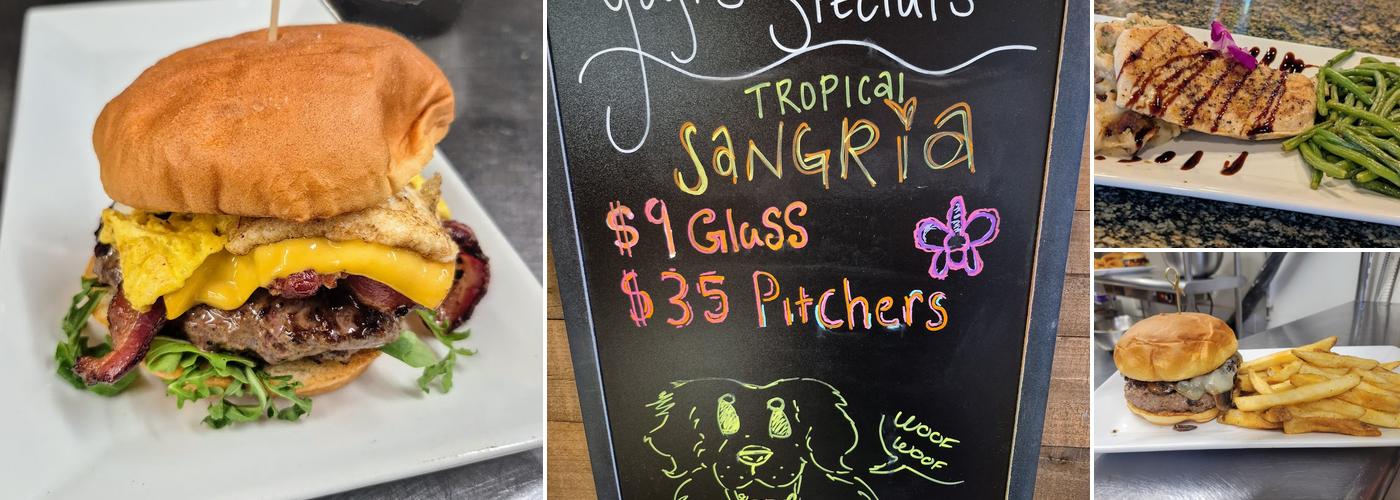 Specials
TROPICal
SaNGRia
$9 Glass
$35 Pitchers
WOOF
WOOF